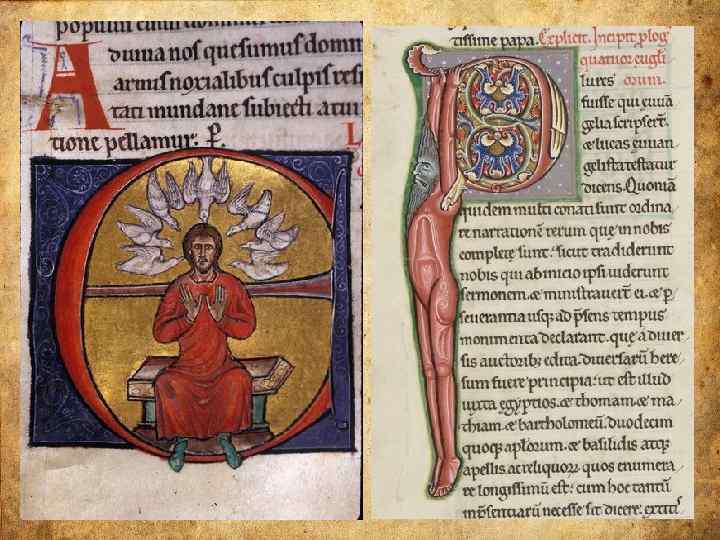 populi
A
diuina nos quesumus domin
armis noxialibus culpis resi
tati munda ne subiecti a tuit
tione pellamur: P.
E
tissime papa. Explicit. Incipit plog
quatuor eug̅li
lures orum.
P
fuisse qui euuā
gelia scripser̅t.
& lucas euuan
gelista testatur
dicens. Quoniā
quidem multi conati sunt ordina
re narrationē rerum que in nobis
complete sunt. sicut tradiderunt
nobis qui ab inicio ipsi uiderunt
sermonem. & ministrauerūt ei. & p̱
seuerantia usq; ad p̄sens tempus
monimenta declarant. que a diuer
sis auctorib; edita. diuersarū here
sum fuere principia: ut est illud
iuxta egyptios. & thomam. & ma
thiam. & bartholomeū. duodecim
quoq; aplorum. & basilidis atq;
apellis ac reliquorꝝ quos enumera
re longissimū est: cum hoc tantū
necesse sit dicere. extiti